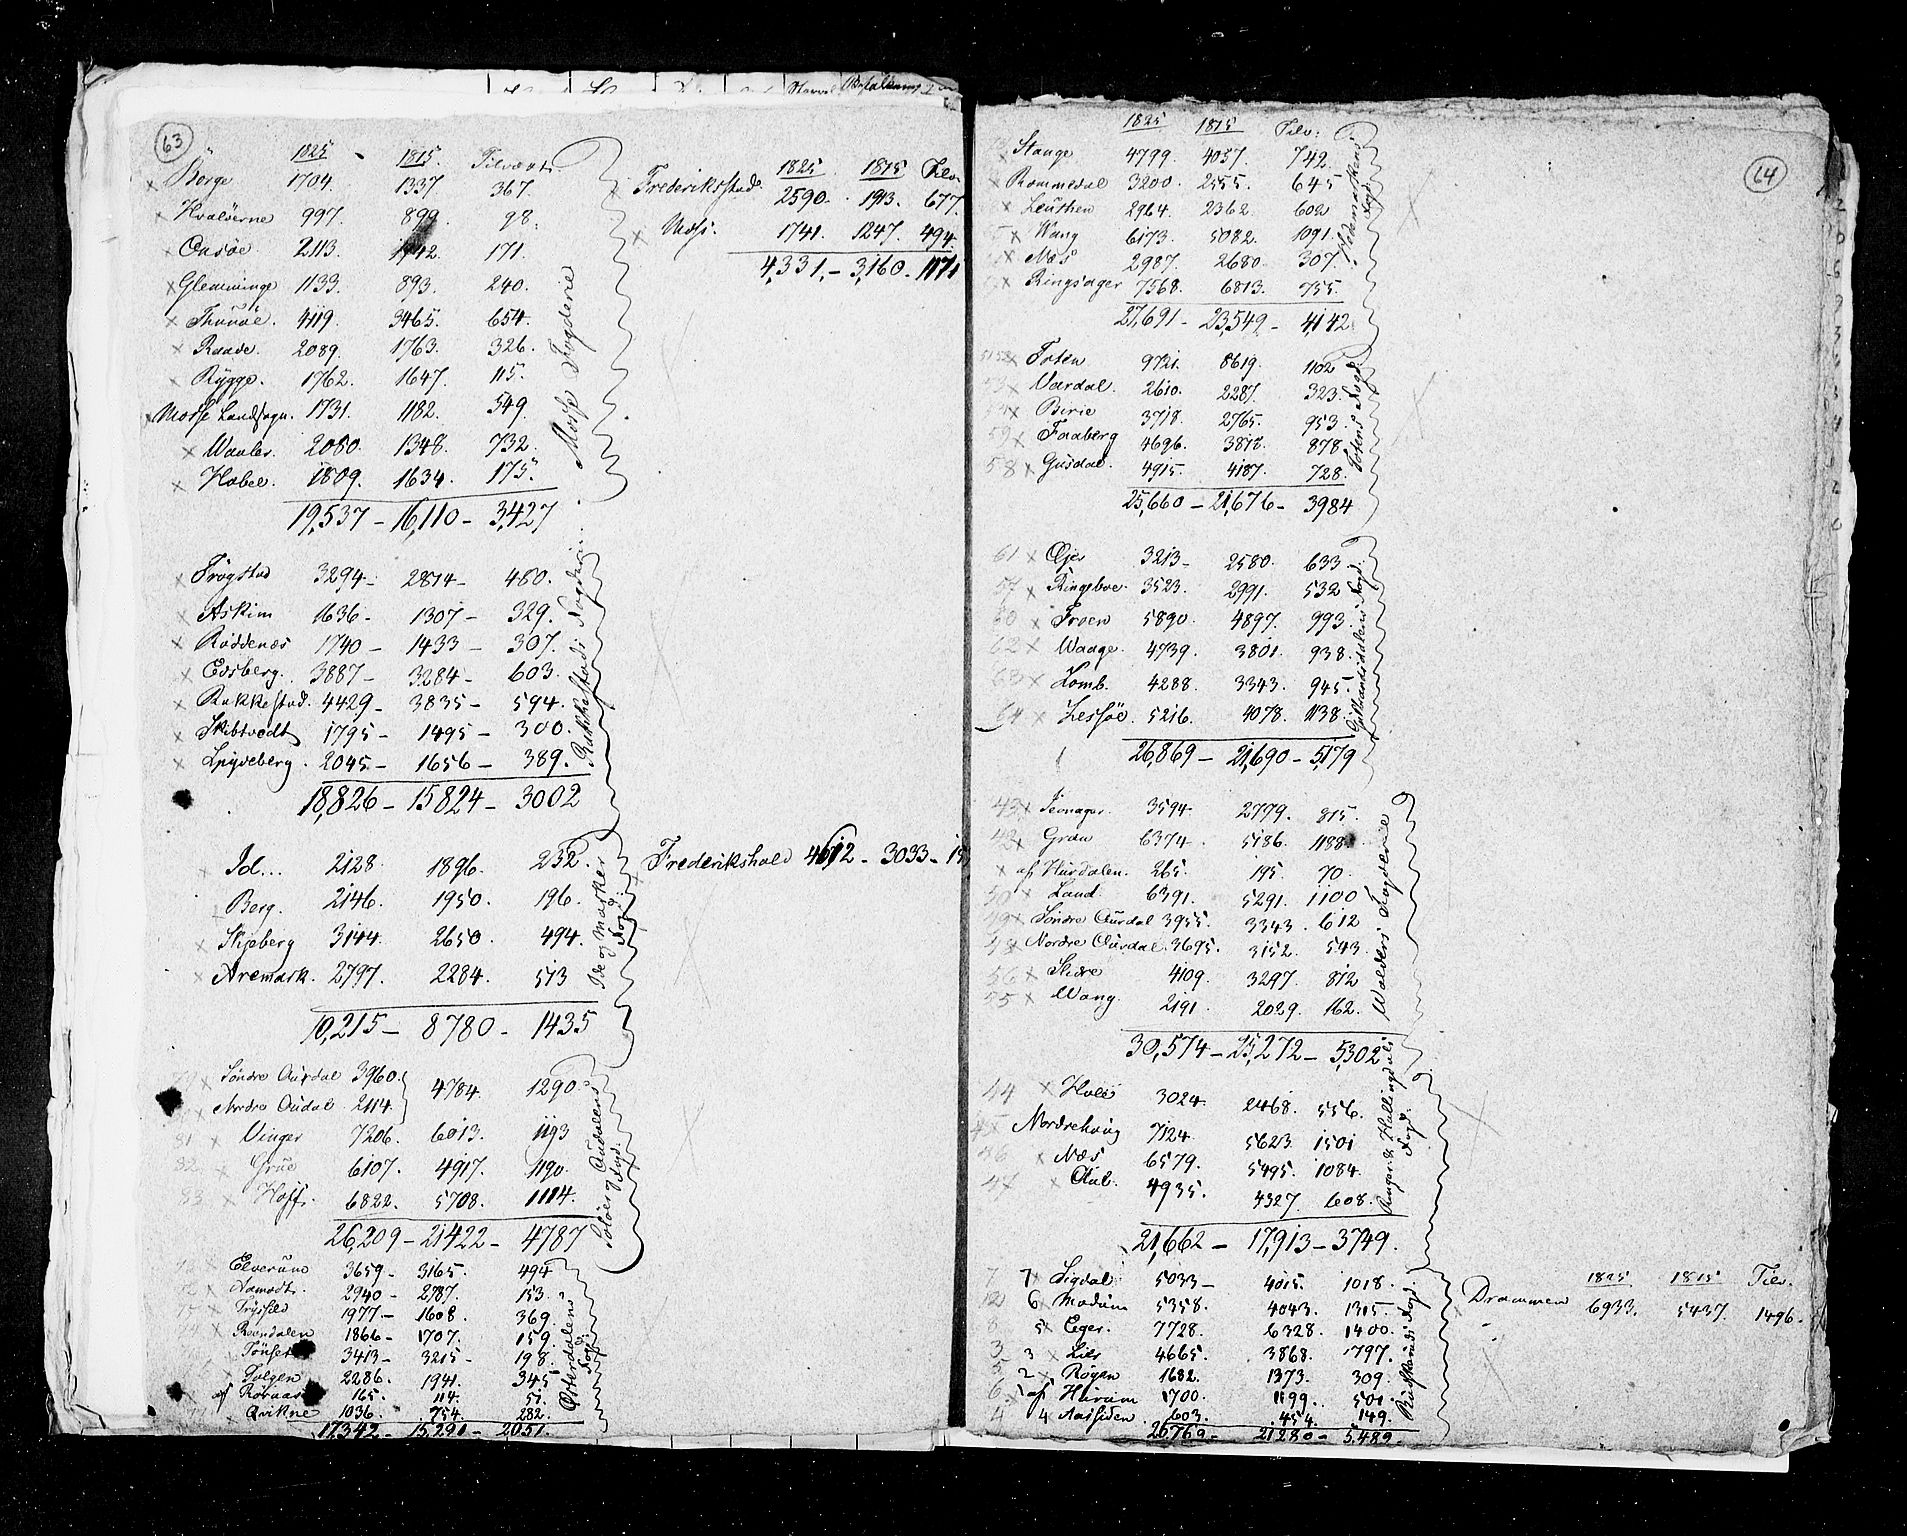 63
1825 1815. Tilvæxt.
Borge 1704. 1337 367.
Hvaløerne 997. 899. 98.
Onsöe 2113. 1942. 171.
Glemminge 1133. 893. 240.
Thunöe. 4119. 3465. 654.
Raade. 2089. 1763. 326.
Rÿgge. 1762. 1647. 115.
Mosse Landsogn. 1731. 1182. 549.
Waaler 2080. 1348. 732.
Hobel. 1809. 1634. 175.
19,537 - 16,110 - 3,427
Mosse Fogderie
1825 1815 Tilv.
Frederiksstad. 2590. 1913. 677.
Moss. 1741. 1247. 494.
4,331, - 3,160. 1171
Trögstad 3294 - 2814 - 480.
Askim 1636 - 1307 - 329.
Röddenæs 1740 - 1433 - 307.
Edsberg. 3887 - 3284 - 603.
Rakkestad. 4429 - 3835 - 594.
Skibtvedt 1795 - 1495 - 300.
Spÿdeberg. 2045 - 1656 - 389.
18,826 - 15824 - 3002
Rakkestads Fogderie.
Id... 2128 1896. 232.
Berg. 2146. 1950. 196.
Skjeberg 3144. 2650. 494.
Aremark. 2797. 2284. 513
10,215 - 8780 - 1435
Ide og Marker Fogd.
Frederikshald 4612 - 3033 - 15
Söndre Oudal 3960.
Nordre Oudal 2114. 4784. 1290.
81 Vinger 7206. 6013. 1193
82 Grue 6107. 4917. 1190.
83 Hoff. 6822. 5708. 1114.
26,209 - 21422 - 4787
Soløer og Oudalens Fogd.
Elverum 3659 - 3165. 494
Aamodt. 2940 - 2787. 153.
Trÿssild 1977 - 1608. 369.
Reendalen 1866 - 1707. 159.
Tönset 3413 - 3215 - 198.
Tolgen 2286. 1941. 345
af Røraas 165. 114. 51.
Qvikne 1036. 754. 282.
17342 - 15291 - 2051.
Østerdalens Fogd.
64
1825 1815 Tilv:
Stange 4799. 4057. 742.
Rommedal 3200. 2555. 645
Leuthen 2964. 2362. 602
Wang 6173. 5082. 1091.
Næs 2987. 2680. 307.
Ringsager 7568. 6813. 755.
27,691 - 23,549 - 4,142
Hedemarkens Fogd.
Toten 9721. 8619. 1102
Vardal. 2610. 2287. 323.
Birie 3718. 2765. 953.
59 Faaberg 4696. 3818. 878.
58 Gusdal. 4915. 4187. 728.
25,660 - 21,676 - 3984
Totens Fogd.
61 Øjer 3213 - 2580. 633
57 Ringeboe. 3523. 2991. 532
60 Froen 5890. 4897. 993.
62 Waage. 4739. 3801. 938.
63 Lomb. 4288. 3343. 945.
64 Lessöe. 5216. 4078. 1138.
26,869 - 21,690 - 5,179
Gulbrandsdalens Fogd.
43 Jevnager. 3594. 2779. 815.
42 Gran 6374. 5186. 1188
af Hurdalen. 265. 195. 70.
50 Land. 6391. 5291. 1100
49 Söndre Aurdal 3955. 3343. 612
Nordre Aurdal. 3695. 3152. 543.
56 Slidre 4109. 3297. 812
55 Wang. 2191. 2029. 162.
30,574 - 25,272 - 5,302
Walders Fogderie
44 Hole 3024. 2468. 556.
45 Nordrehoug 7124. 5623. 1501
46 Næs 6579. 5495. 1084.
47 Aal. 4935. 4327. 608.
21,662 - 17,913 - 3749.
Ringer. & Hallingdals Fogd.
7 7 Sigdal 5033 - 4015. 1018.
6 Modum 5358. 4043. 1315
8 5 Eger. 7728. 6328. 1400.
3 3 Lier 4665. 3868. 797.
5 2 Røgen 1682. 1373. 309.
6. af Hurum 1700. 1199. 501
4 4 Aassiden. 603. 454. 149.
26769 - 21280 - 5,489.
Buskeruds Fogd.
1825 1815 Tilv.
Drammen 6933. 5437. 1496.